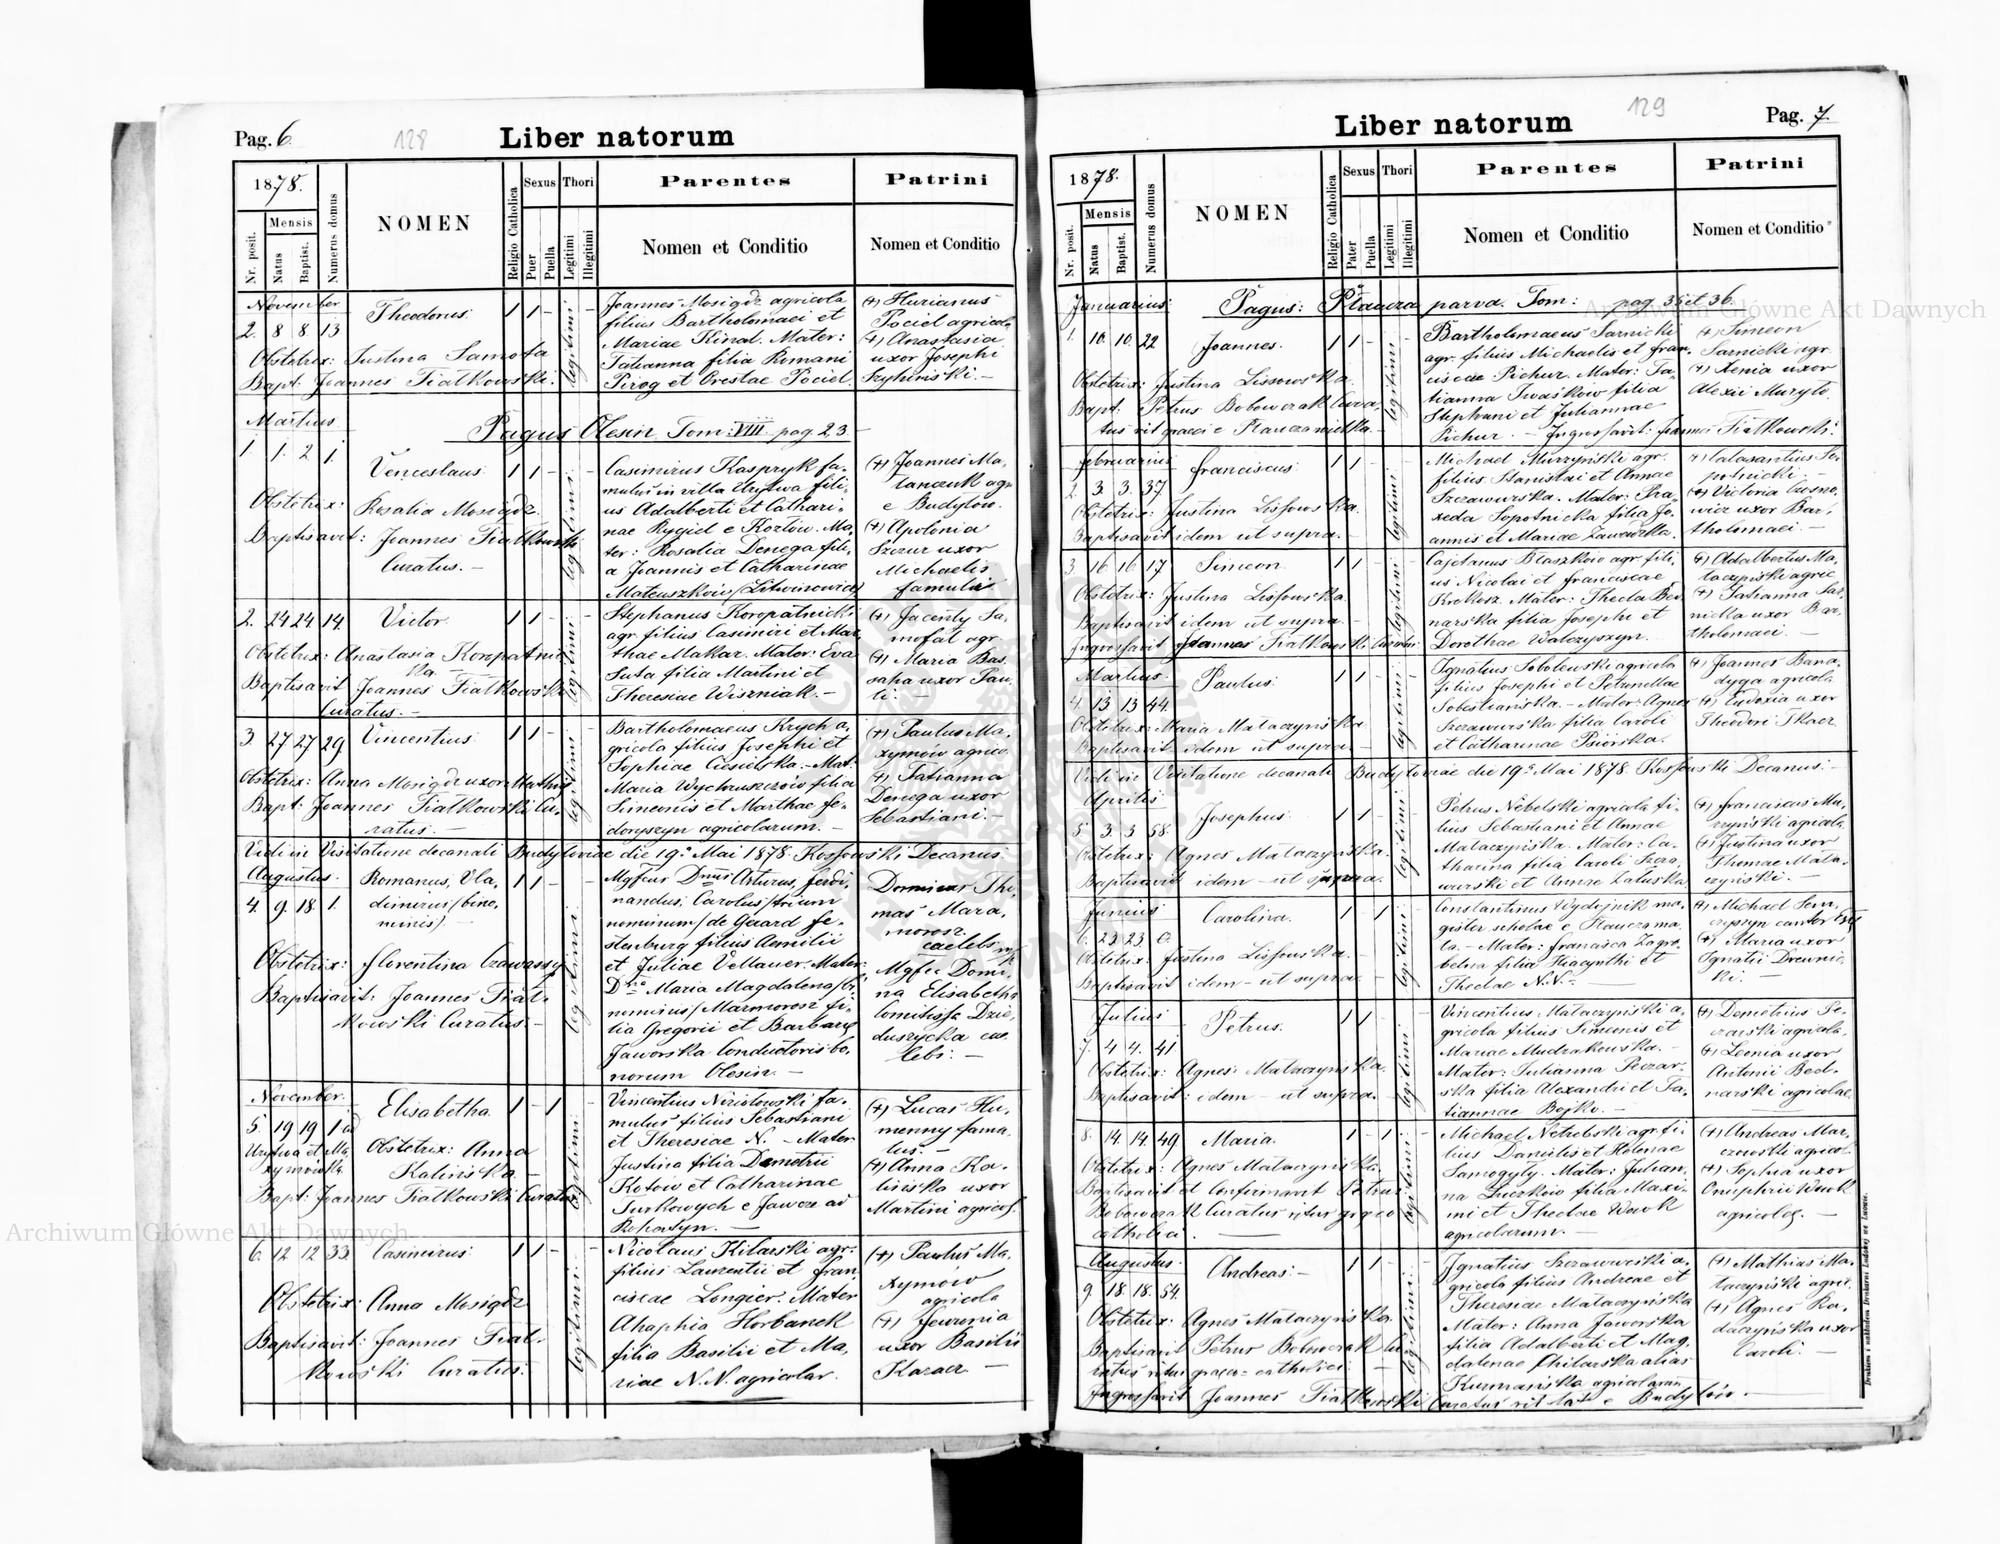 Pag. 6.
128
Liber natorum
1878.
Mensis
Nr. posit.
Natus
Baptist.
Numerus domus
NOMEN
Religio Catholica
Sexus
Puer
Puella
Thori
Legitimi
Illegitimi
Parentes
Nomen et Conditio
Patrini
Nomen et Conditio
November
2. 8 8 13
Theodorus.
1 1 -
legitimi
Obstetrix: Justina Samota
Bapt: Joannes Fiałkowski.
Joannes Mosigdz agricola
filius Bartholomaei et
Mariae Kinal. Mater:
Tatianna filia Romani
Pirog et Orestae Pociel.
(+) Florianus
Pociel agricola
(+) Anastasia
uxor Josephi
Martius
Pagus Olesin Tom: VIII. pag. 23
1. 1. 2 1.
Venceslaus
1 1 -
legitimi
Obstetrix: Rosalia Mosigdz
Baptisavit: Joannes Fiałkowski
Curatus. -
Casimirus Kasprzyk fa-
mulus in villa Urytwa fili-
us Adalberti et Cathari-
nae Rygiel e Kozłów. Ma-
ter: Rosalia Denega fili-
a Joannis et Catharinae
Mateuszków (Litwinowicz)
(+) Joannes Ma-
tanczuk agr
e Budyłow.
(+) Apolonia
Szczur uxor
Michaelis
famula
2. 24 24 14.
Victor
1 1 -
legitimi
Obstetrix: Anastasia Koropatnic-
ka
Baptisavit Joannes Fiałkowski
Curatus. -
Stephanus Koropatnicki
agr. filius Casimiri et Mar-
thae Makar. Mater: Eva
Suta filia Martini et
Theresiae Wiszniak. -
(+) Jacenty Sa-
mofał agr
(+) Maria Bas-
saha uxor Pau-
li. -
3. 27 27 29
Vincentius
1 1 -
legitimi
Obstetrix: Anna Mosigdz uxor Mathis
Bapt: Joannes Fiałkowski Cu-
ratus. -
Bartholomaeus Krych a-
gricola filius Josephi et
Sophiae Ciesielska. - Mat:
Maria Wychruszczów filia
Simeonis et Marthae Fe-
doryszyn agricolarum. -
(+) Paulus Ma-
xymów agrico
(+) Tatianna
Denega uxor
Sebastiani. -
Vidi in Visitatione decanali Budyloviae die 19. Mai 1878. Kossowski Decanus.
Augustus.
4. 9. 18. 1.
Romanus, Vla-
dimirus (bino-
minis)
1 1 -
legitimi
Obstetrix: Florentina
Baptisavit: Joannes Fiał-
kowski Curatus. -
Mgfcus Dnus Arturus, Ferdi-
nandus, Carolus (trium
nominum) de Gaard Fe-
stenburg filius Aemilii
et Juliae Vellauer. Mater:
Dna Maria Magdalena (bi-
nominis) Marmorosz fi-
lia Gregorii et Barbarae
Jaworska Conductoris bo-
norum Olesin. -
Dominus Tho-
mas Mara-
morosz
caelebs
Mgfca Domi-
na Elisabetha
Comitissa Dzie-
duszycka cae-
lebs: -
November.
5. 19 19 1 ad
Urytwa et Ma-
xymówka
Elisabetha
1 - 1
legitimi
Obstetrix: Anna
Kalinska -
Bapt: Joannes Fiałkowski Curatus
Vincentius Niziołowski fa-
mulus filius Sebastiani
et Theresiae N. - Mater
Justina filia Demetrii
Kotow et Catharinae
Turkowych e Jawcze ad
Rohatyn. -
(+) Lucas Hu-
menny famu-
lus. -
(+) Anna Ka-
liniska uxor
Martini agricol.
6. 12 12 33.
Casimirus
1 1 -
legitimi
Obstetrix: Anna Mosigdz
Baptisavit: Joannes Fiał-
kowski Curatus.
Nicolaus Kilarski agr.
filius Laurentii et Fran-
ciscae Longier. Mater
Ahaphia Horbanek
filia Basilii et Ma-
riae N.N. agricolar.
(+) Paulus Ma-
xymów
agricola
(+) Fewronia
uxor Basilii
Kazacz -
129
Pag. 7.
Liber natorum
1878.
Mensis
Nr. posit.
Natus
Baptist.
Numerus domus
NOMEN
Religio Catholica
Sexus
Pater
Puella
Thori
Legitimi
Illegitimi
Parentes
Nomen et Conditio
Patrini
Nomen et Conditio
Januarius:
Pagus: Płaucza parva. Tom: pag. 35 et 36.
1. 10. 10. 22
Joannes.
1 1 -
legitimi
Obstetrix: Justina Lissowska.
Bapt: Petrus Bobowczak Cura-
tus rit graeci e Płaucza wielka. -
Bartholomaeus Sarnicki
agr. filius Michaelis et Fran-
ciscae Pichur. Mater: Ta-
tianna Iwaśków filia
Stephani et Juliannae
Pichur. - Ingrossavit: Joannes Fiałkowski.
(+) Simeon
Sarnicki agr.
(+) Xenia uxor
Alexii Muryto
Februarius
2. 3. 3. 37.
Franciscus:
1 1 -
legitimi
Obstetrix: Justina Lissowska.
Baptisavit idem ut supra. -
Michael Muszyński agr.
filius Stanislai et Annae
Szczawurska. Mater: Pra-
xeda Sopotnicka filia Jo-
annis et Mariae Zawadzka.
(+) Calasantius So-
potnicki -
(+) Victoria Czesno-
wicz uxor Bar-
tholomaei. -
3. 16 16 17
Simeon
1 1 -
legitimi
Obstetrix: Justina Lissowska
Baptisavit idem ut supra.
Ingrossavit Joannes Fiałkowski Curatus
Cajetanus Błaszków agr. fili-
us Nicolai et Franciscae
Krekosz. Mater: Thecla Bed-
narska filia Josephi et
Dorothae Walczyszyn.
(+) Adalbertus Ma-
taczyński agric
(+) Tatianna Sar-
nicka uxor Bar-
tholomaei. -
Martius.
4. 13 13 44.
Paulus.
1 1 -
legitimi
Obstetrix: Maria Mataczyńska
Baptisavit idem ut supra. -
Ignatius Sobolewski agricola
filius Josephi et Petronellae
Sobestiańska. - Mater: Agnes
Szczawurska filia Caroli
et Catharinae Psiorska.
(+) Joannes Bana-
dyga agricola
(+) Eudoxia uxor
Theodori Tkacz
Vidi in Visitatione decanali Budyloviae die 19. Mai 1878. Kossowski Decanus. -
Aprilis
5. 3. 3 58.
Josephus.
1 1 -
legitimi
Obstetrix: Agnes Mataczyńska.
Baptisavit idem - ut supra.
Petrus Nebelski agricola fi-
lius Sebastiani et Annae
Mataczyńska. Mater: Ca-
tharina filia Caroli Szcza-
wurski et Annae Załuska
(+) Franciscus Mu-
szyński agricola
(+) Justina uxor
Thomae Mata-
czyński. -
Junius
6. 23 23. 0.
Carolina.
1 - 1 -
legitimi
Obstetrix: Justina Lissowska. -
Baptisavit idem - ut supra.
Constantinus Wydojnik ma-
gister scholae e Płaucza ma-
ła. - Mater: Francisca Zagro-
belna filia Hiacynthi et
Theclae N.N. -
(+) Michael Sem-
czyszyn cantor
(+) Maria uxor
Ignatii Drewnic-
ki. -
Julius
7. 4 4. 41
Petrus.
1 1
legitimi
Obstetrix: Agnes Mataczyńska.
Baptisavit: idem - ut supra. -
Vincentius Mataczyński a-
gricola filius Simeonis et
Mariae Mudrakowska. -
Mater: Julianna Peczar-
ska filia Alexandri et Ta-
tiannae Bojko. -
(+) Demetrius Pe-
czarski agricola.
(+) Leonia uxor
Antonii Bed-
narski agricolae.
8. 14. 14. 49.
Maria.
1 - 1 -
legitimi
Obstetrix: Agnes Mataczyńska.
Baptisavit et Confirmavit Petrus
Bobowczak Curatus ritus graeco
catholici. -
Michael Netrebski agr. fi-
lius Danielis et Helenae
Samogyty. Mater: Julian-
na Łuczków filia Maxi-
mi et Theclae Wowk
agricolarum. -
(+) Andreas Mar-
(+) Sophia uxor
Onuphrii Wowk
agricolae. -
Augustus.
9. 18. 18. 54.
Andreas. -
1 1 -
legitimi
Obstetrix: Agnes Mataczyńska
Baptisavit Petrus Bobowczak Cu-
ratus ritus graeco-catholici
Ingrossavit Joannes Fiałkowski Curatus rit lat e Budyłów. -
Ignatius Szczawurski a-
gricola filius Andreae et
Theresiae Mataczyńska
Mater: Anna Jaworska
filia Adalberti et Mag-
dalenae Philarska alias
Kurmańska agricolarum
(+) Mathias Ma-
taczyński agric.
(+) Agnes Ra-
daczyńska uxor
Caroli. -
Drukiem i nakładem Drukarni Ludowej we Lwowie.
Archiwum Główne Akt Dawnych
Archiwum Główne Akt Dawnych